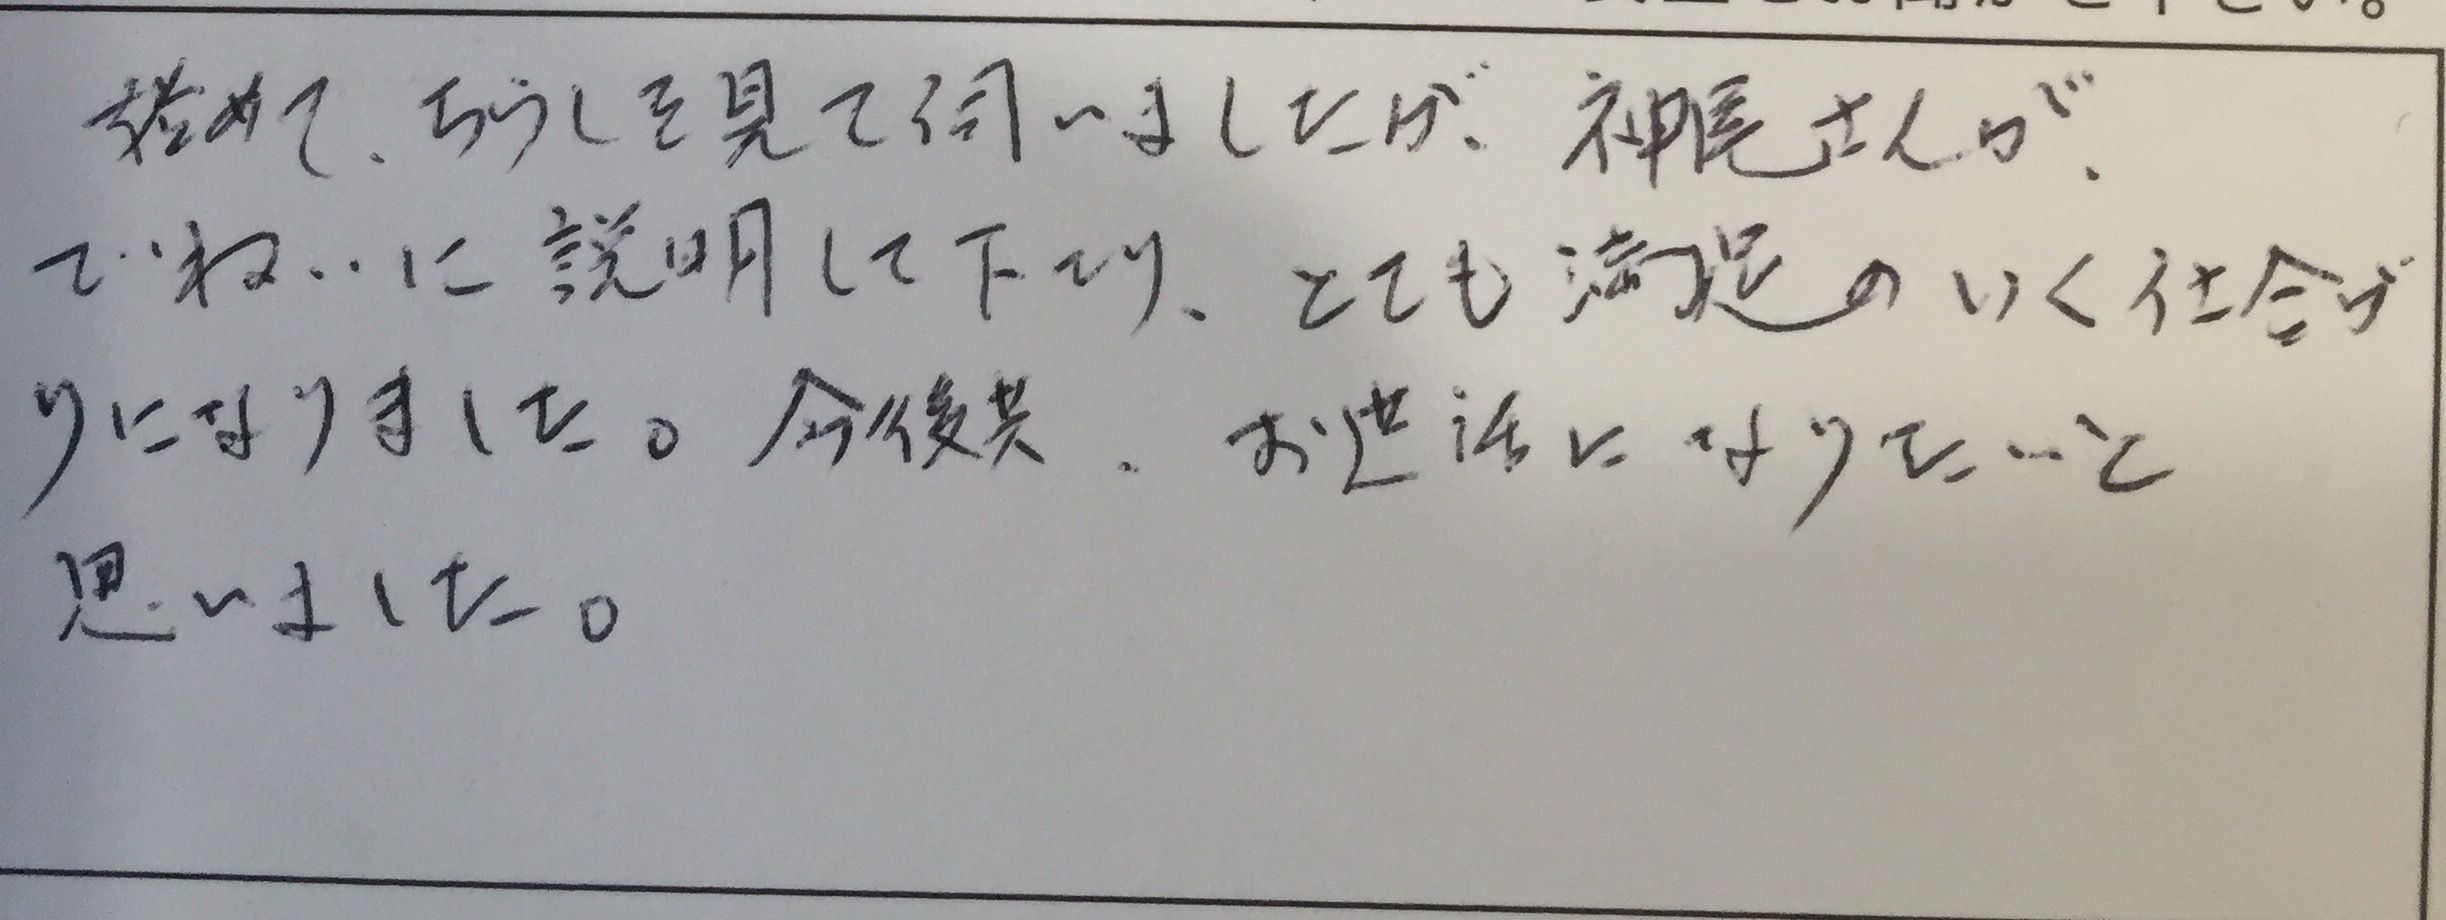 初めて、ちらしを見て伺いましたが、神尾さんが、
ていねいに説明して下さり、とても満足のいく仕合が
りになりました。今後共、お世話になりたいと
思いました。